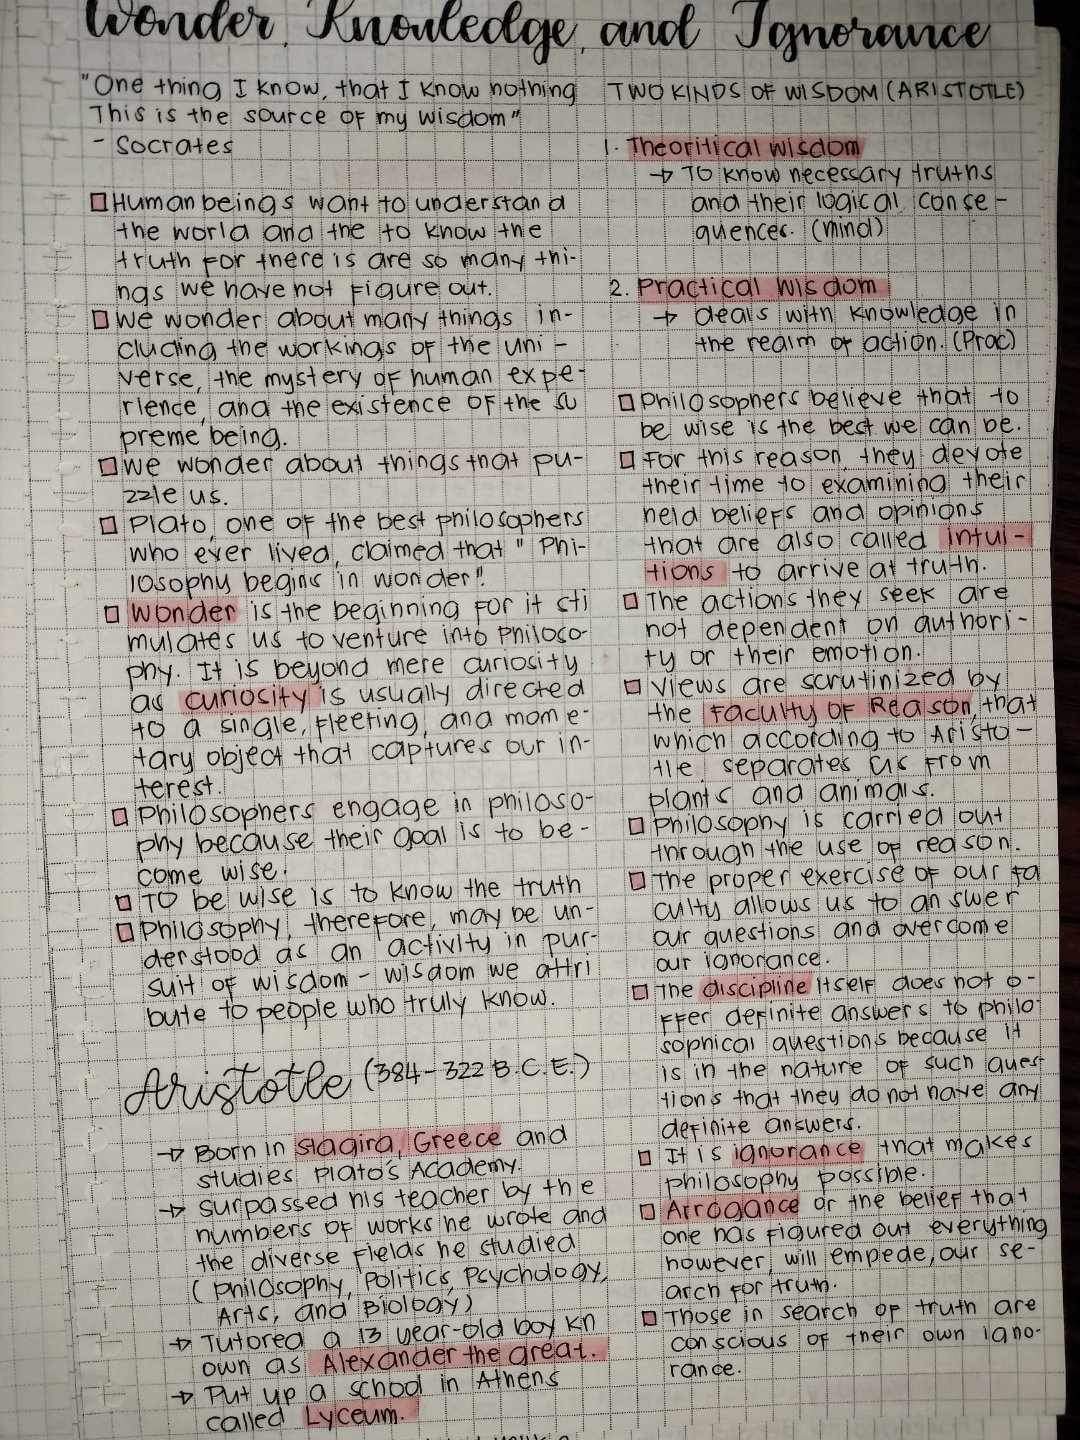 Wonder, Knowledge, and Ignorance
"One thing I know, that I know nothing
This is the source of my wisdom"
- Socrates
Human beings want to understand
the world and the to know the
truth for there is are so many thi-
ngs we have not figure out.
We wonder about many things in-
cluding the workings of the uni-
verse, the mystery of human expe-
rience, and the existence of the su
preme being.
We wonder about things that pu-
zzle us.
Plato, one of the best philosophers
who ever lived, claimed that "Phi-
losophy begins in wonder".
Wonder is the beginning for it sti
mulates us to venture into philoso-
phy. It is beyond mere curiosity
as curiosity is usually directed
to a single, fleeting, and mome-
tary object that captures our in-
terest.
Philosophers engage in philoso-
phy because their goal is to be-
come wise.
To be wise is to know the truth
Philosophy, therefore, may be un-
derstood as an activity in pur-
suit of wisdom - wisdom we attri
bute to people who truly know.
Aristotle (384-322 B.C.E.)
→ Born in Stagira, Greece and
studies Plato's Academy.
→ surpassed his teacher by the
numbers of works he wrote and
the diverse fields he studied
(philosophy, Politics, Psychology,
Arts, and Biology)
→ Tutored a 13 year-old boy kn
own as Alexander the great.
→ Put up a school in Athens
called Lyceum.
TWO KINDS OF WISDOM (ARISTOTLE)
1. Theoritical wisdom
→ To know necessary truths
and their logical conse-
quences. (mind)
2. Practical wisdom
→ deals with knowledge in
the realm of action. (Prac)
Philosophers believe that to
be wise is the best we can be.
For this reason, they devote
their time to examining their
held beliefs and opinions
that are also called intui-
tions to arrive at truth.
The actions they seek are
not dependent on authori-
ty or their emotion.
Views are scrutinized by
the Faculty of Reason, that
which according to Aristo-
tle, separates us from
plants and animals.
Philosophy is carried out
through the use of reason.
The proper exercise of our fa
culty allows us to answer
our questions and overcome
our ignorance.
The discipline itself does not o-
ffer definite answers to philo
sophical questions because it
is in the nature of such ques-
tions that they do not have any
definite answers.
It is ignorance that makes
philosophy possible.
Arrogance or the belief that
one has figured out everything
however, will empede, our se-
arch for truth.
Those in search of truth are
conscious of their own igno-
rance.